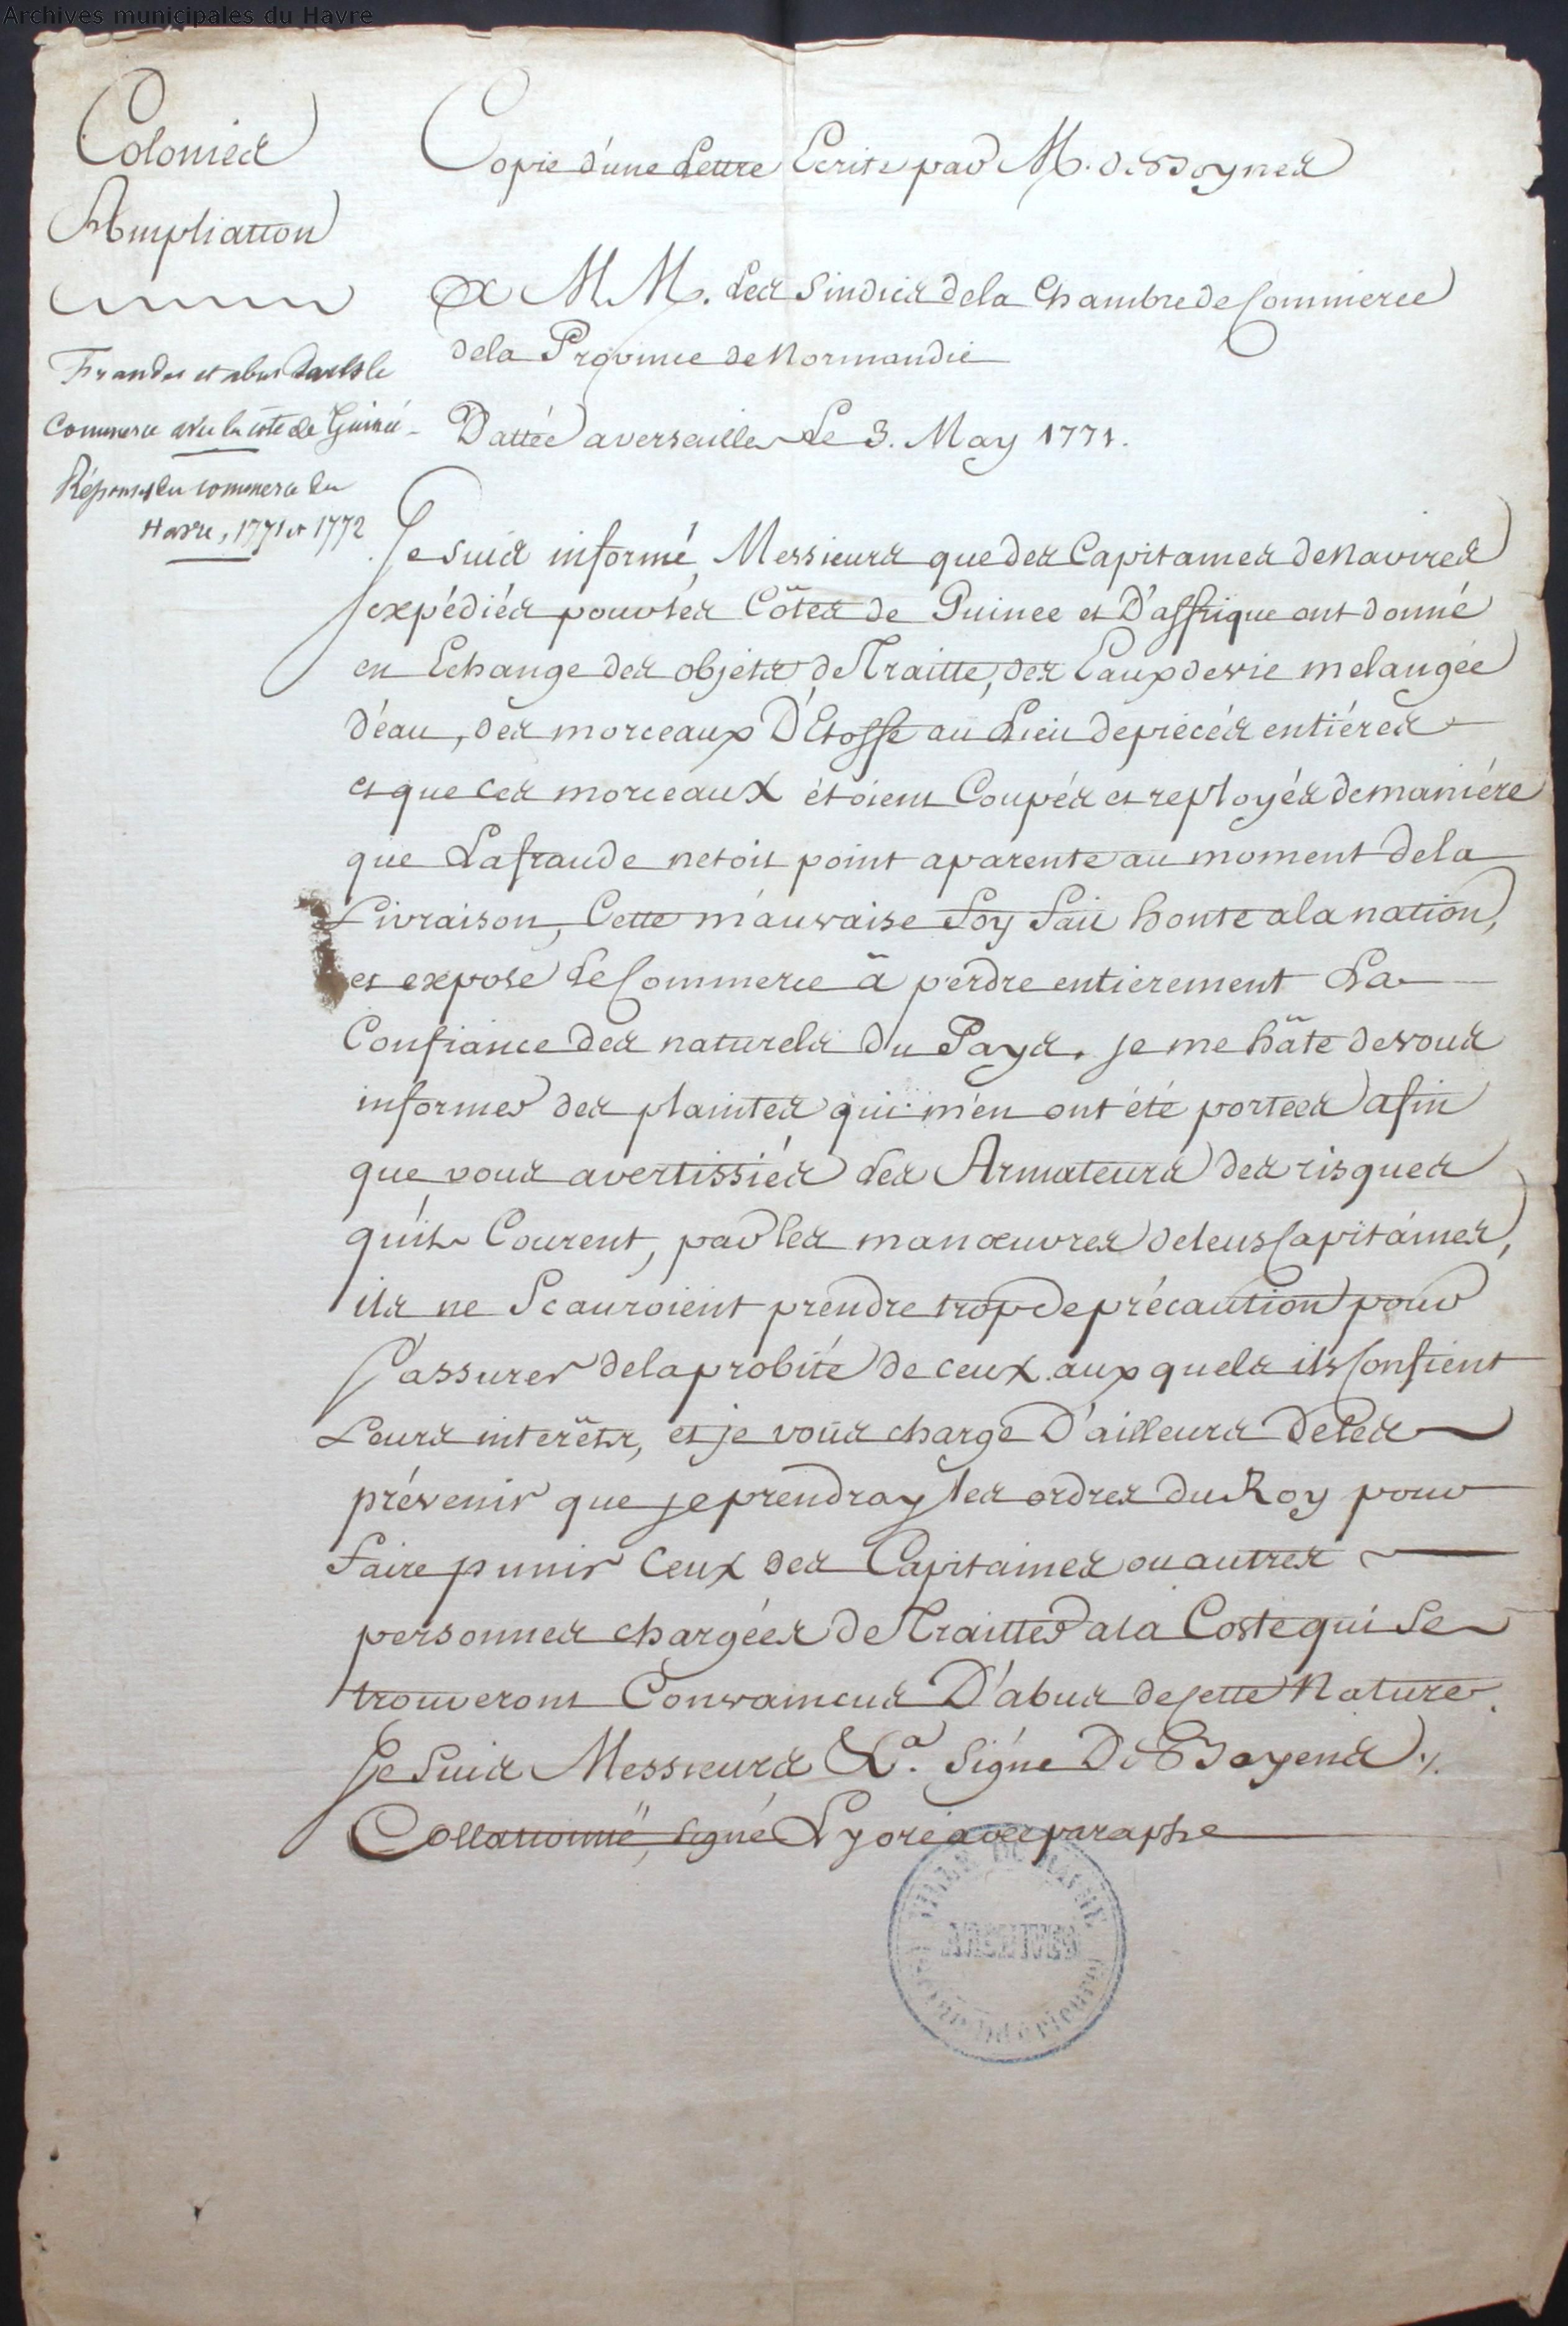 Archives municipales du Havre
Colonies
Ampliation
Fraudes et abus dans le
Commerce avec la côte de Guinée -
Réponses du commerce du
Havre, 1771 et 1772
Copie d'une Lettre Ecrite par M. de Boynes
a M M. Les Sindics de la Chambre de Commerce
de la Province de Normandie
Dattée a versailles Le 3. May 1771.
Je suis informé, Messieurs que des Capitaines de navires
expédiés pour les Côtes de Guinee et D'affrique ont donné
en Echange des objets de Traitte, des Eaux de vie melangée
d'eau, des morceaux D'Etoffe au Lieu de piéces entiéres
et que ces morceaux étoient Coupés et reployés de maniére
que La fraude netoit point aparente au moment de la
Livraison, Cette mauvaise foy fait honte a la nation,
et expose Le Commerce à perdre entierement La
Confiance des naturels du Pays. je me hâte de vous
informer des plaintes qui m'en ont été portées afin
que vous avertissiés les Armateurs des risques
qu'ils Courent, par les manœuvres de leurs Capitaines,
ils ne Scauroient prendre trop de précaution pour
S'assurer de la probité de ceux auxquels ils Confient
Leurs interêts, et je vous charge D'ailleurs de les
prévenir que je prendray les ordres du Roy pour
faire punir Ceux des Capitaines ou autres
personnes chargées de Traitter a la Coste qui Se
trouveront Convaincus D'abus de Cette Nature.
Je Suis Messieurs &a. Signé De Boyens ./.
Collationné, signé Lyoré avec paraphe
VILLE DU HAVRE
ARCHIVES
Seine Inférieure